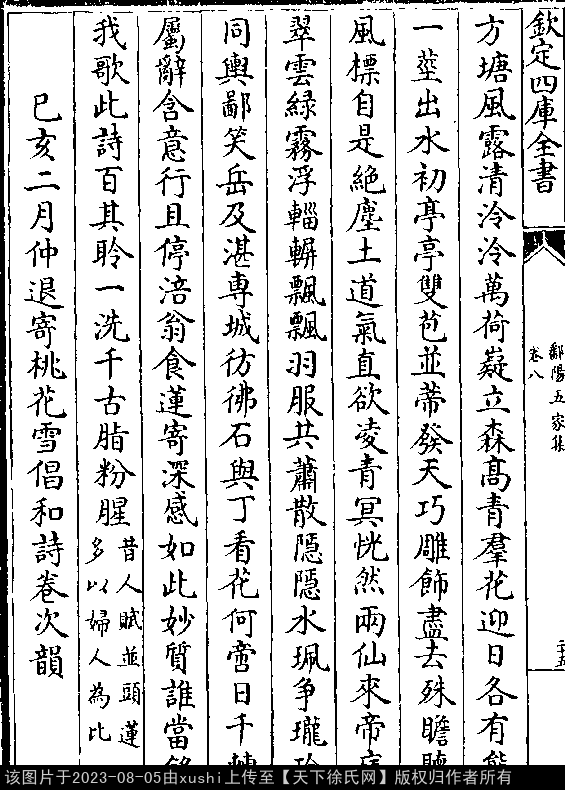 欽定四庫全書
鄱陽五家集
卷八
二十五
方塘風露清泠泠萬荷嶷立森髙青羣花迎日各有
一莖出水初亭亭雙苞並蒂發天巧雕飾盡去殊瞻
風標自是絶塵土道氣直欲凌青冥恍然兩仙來帝
翠雲緑霧浮輜軿飄飄羽服共蕭散隠隠水珮爭瓏
同輿鄙笑岳及湛専城彷彿石與丁看花何啻日千
屬辭含意行且停涪翁食蓮寄深感如此妙質誰當
我歌此詩百其聆一洗千古脂粉腥昔人賦並頭蓮
多以婦人為比
己亥二月仲退寄桃花雪倡和詩卷次韻
该图片于2023-08-05由xushi上传至【天下徐氏网】版权归作者所有